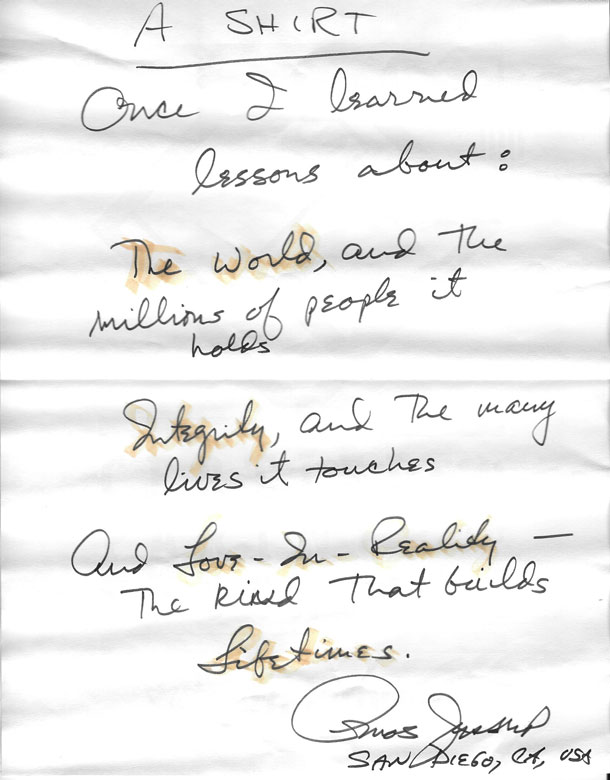 A SHIRT
Once I learned
lessons about:
The World, and the
millions of people it
holds
Integrity, and The many
lives it touches
And Love-In-Reality —
The kind That builds
Lifetimes.
Amos Jessup
SAN DIEGO, CA, USA